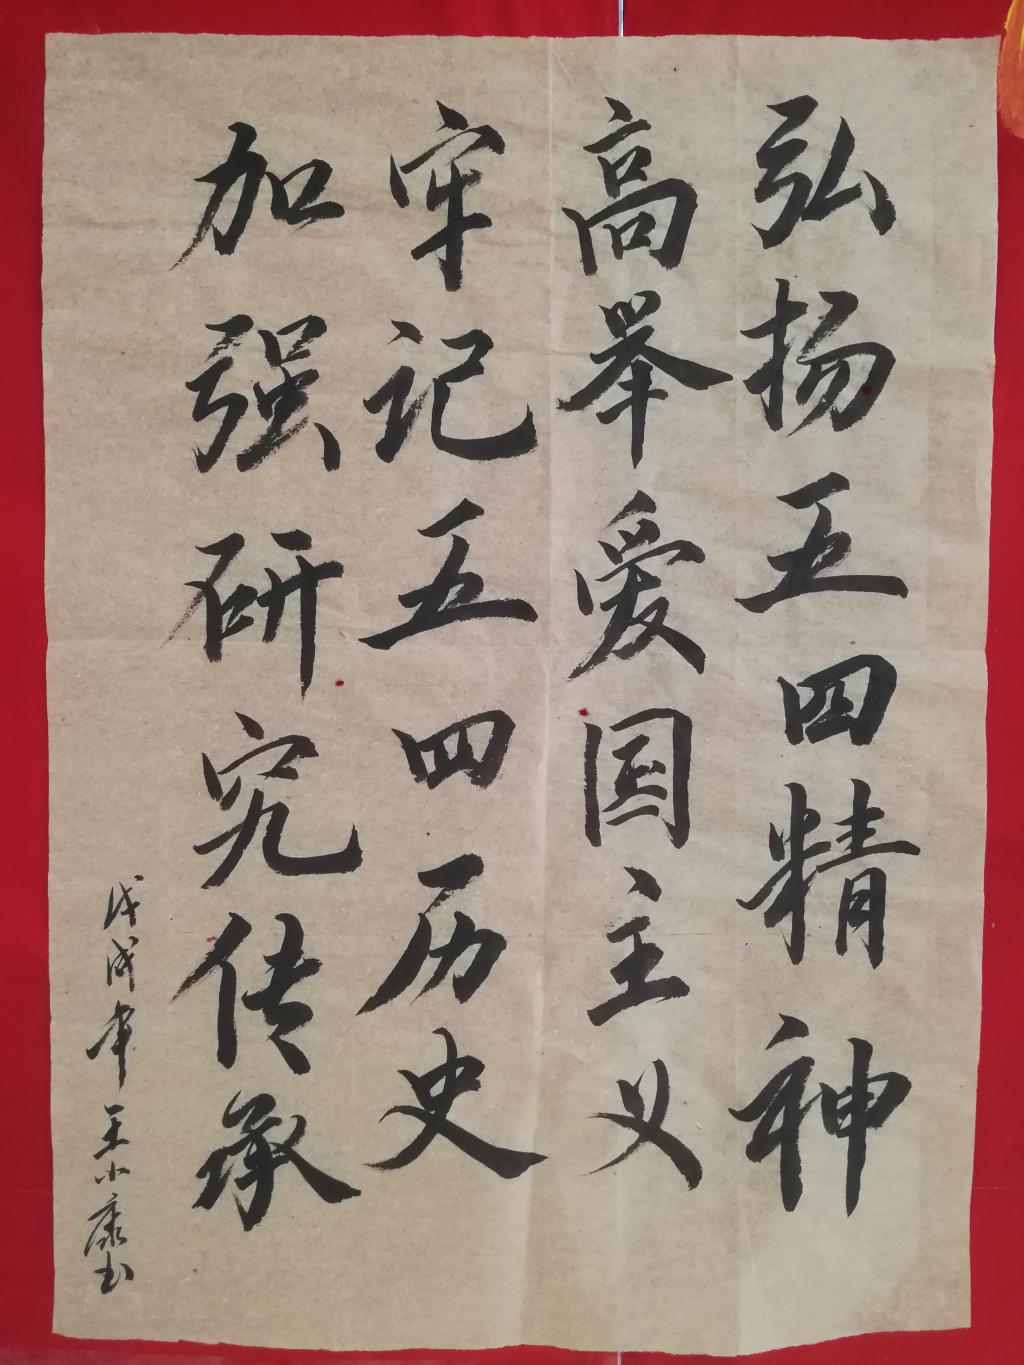 弘扬五四精神
高举爱国主义
牢记五四历史
加强研究传承
戊戌年王小康书